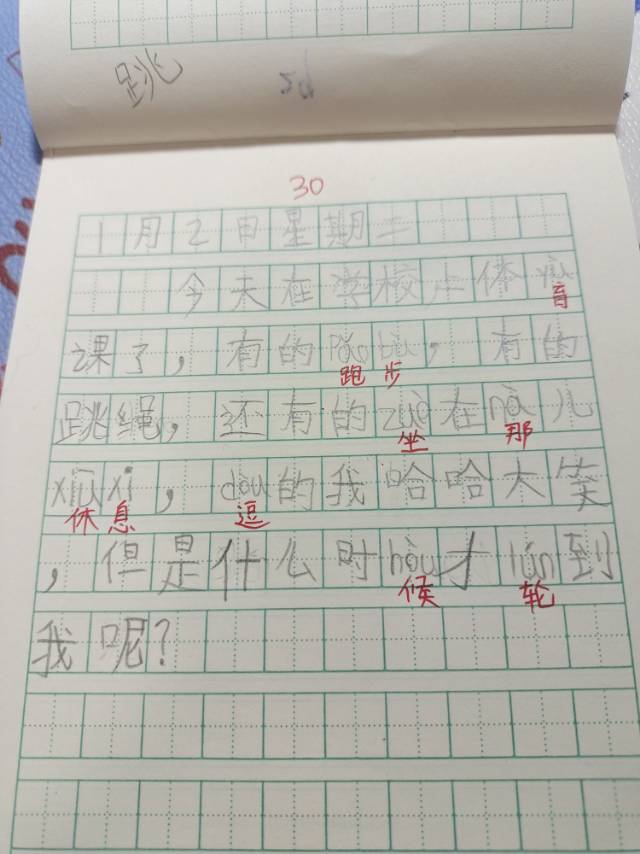 跳
30
1月2日星期二
今天在学校上体yù
育
课了，有的pǎobù，有的
跑步
跳绳，还有的zuò在nà儿
坐 那
xiūxi，dòu的我哈哈大笑
休息 逗
，但是什么时hòu才lún到
候 轮
我呢？